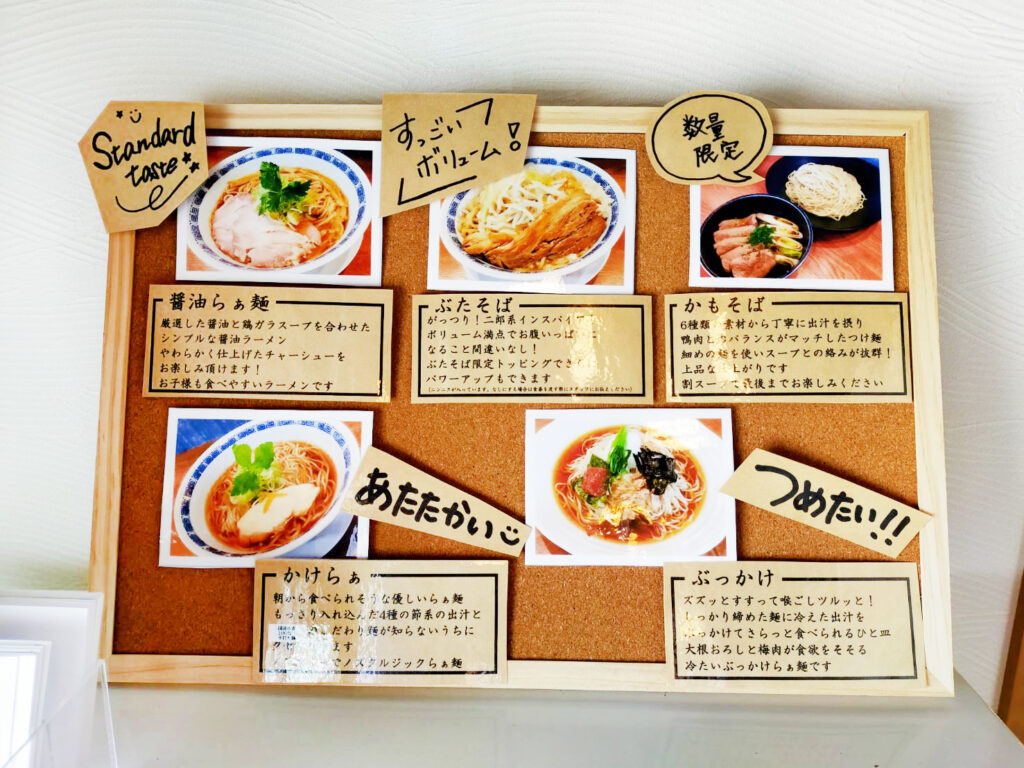 Standard
taste
すっごい
ボリューム!
数量
限定
醤油らぁ麺
厳選した醤油と鶏ガラスープを合わせた
シンプルな醤油ラーメン
やわらかく仕上げたチャーシューを
お楽しみ頂けます！
お子様も食べやすいラーメンです
ぶたそば
がっつり！二郎系インスパイア
ボリューム満点でお腹いっぱい
なること間違いなし！
ぶたそば限定トッピングでさ
パワーアップもできます
かもそば
6種類 素材から丁寧に出汁を摂り
鴨肉と バランスがマッチしたつけ麺
細めの麺を使いスープとの絡みが抜群！
上品な 上がりです
割スープで最後までお楽しみください
あたたかい
つめたい!!
かけらぁ
朝から食べられそうな優しいらぁ麺
もっさり入れ込んだ4種の節系の出汁と
だわり麺が知らないうちに
ます
でノスタルジックらぁ麺
ぶっかけ
ズズッとすすって喉ごしツルッと！
しっかり締めた麺に冷えた出汁を
ぶっかけてさらっと食べられるひと皿
大根おろしと梅肉が食欲をそそる
冷たいぶっかけらぁ麺です